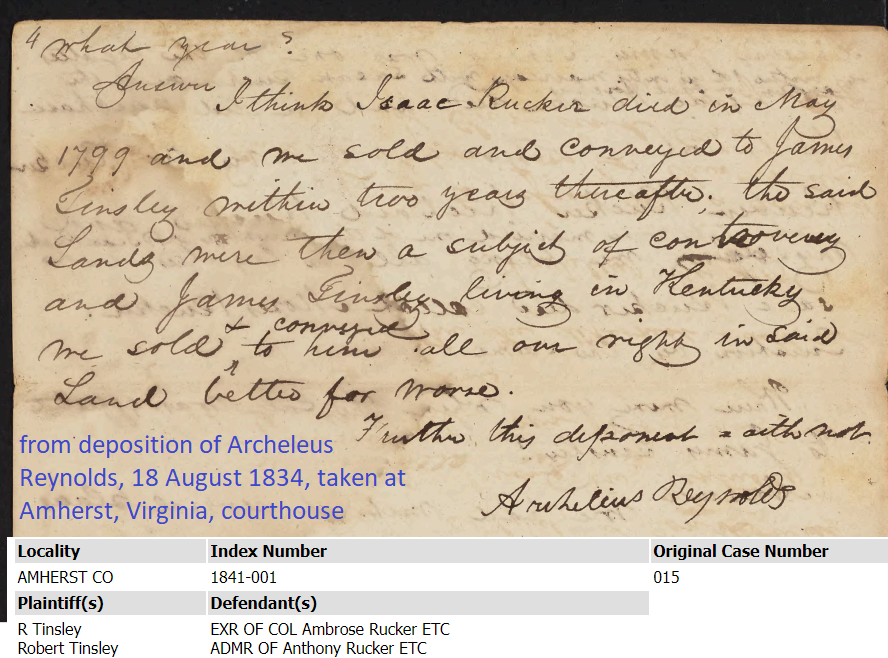 4 what year?
Answer I think Isaac Rucker died in May
1799 and we sold and conveyed to James
Tinsley within two years thereafter. the said
Lands were then a subject of controversy
and James Tinsley living in Kentucky
we sold & conveyed to him all our right in said
Land better for worse.
Further this deponent saith not
Archelius Reynolds
from deposition of Archeleus
Reynolds, 18 August 1834, taken at
Amherst, Virginia, courthouse
Locality Index Number Original Case Number
AMHERST CO 1841-001 015
Plaintiff(s) Defendant(s)
R Tinsley EXR OF COL Ambrose Rucker ETC
Robert Tinsley ADMR OF Anthony Rucker ETC